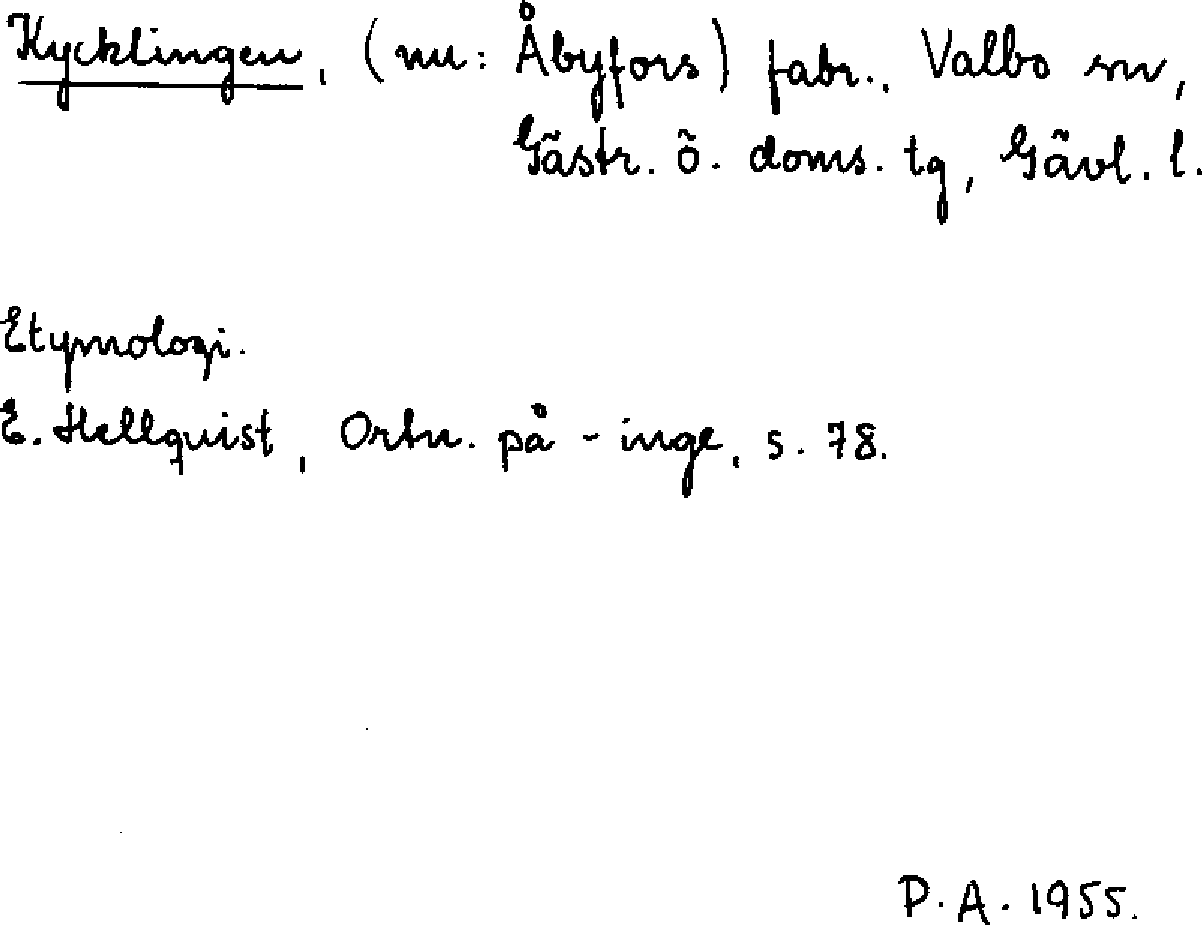 Kycklingen, (nu: Åbyfors) fabr., Valbo sn,
Gästr. ö. doms. tg, Gävl. l.
Etymologi.
E. Hellquist, Ortn. på -inge, s. 78.
P.A. 1955.